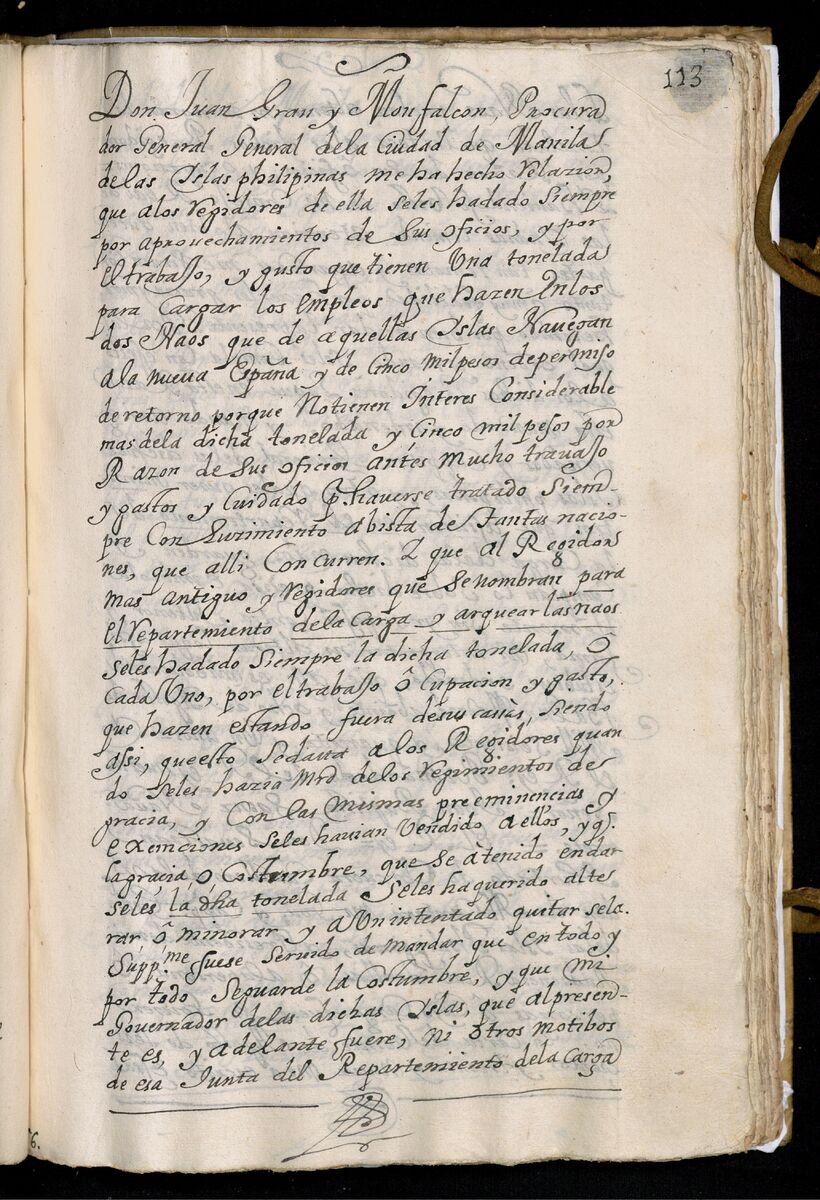 113
Don Juan Grau y Monfalcon, Procura
dor General General de la Ciudad de Manila
delas Yslas philipinas me ha hecho Relazion,
que alos Regidores de ella seles hadado Siempre
por aprovechamientos de Sus oficios, y por
El traballo, y gusto que tienen Una tonelada
para Cargar los empleos que hazen Enlos
dos Naos que de aquellas Yslas Navegan
ala nueva España y de Cinco mil pesos depermiso
de retorno porque Notienen Interes Considerable
mas dela dicha tonelada y Cinco mil pesos por
Razon de Sus oficios antes mucho travallo
y gastos y Cuidado P. haverse tratado Siem-
pre Con Luzimiento abista de Tantas nacio-
nes, que alli Concurren. Y que al Regidor
mas antiguo y Regidores que Senombran para
el Repartemiento dela Carga y arquear las naos
Seles hadado Siempre la dicha tonelada, ô
Cada Uno, por el traballo ô Cupacion y gasto,
que hazen estando fuera desus casas, siendo
assi, queesto Sedava a los Regidores quan
do Seles hazia Mrd de los Regimientos de
gracia, y Con las mismas preeminencias y
exenciones Seles havian Vendido aellos, y q.
la gracia, o Costumbre, que Se àtenido en dar
seles la dha tonelada Seles haquerido alte
rar, ô minorar y aUn intentado quitar sela.
Supp.me fuese Servido de mandar que en todo y
por todo Seguarde la Costumbre, y que mi
Governador delas dichas Yslas, que alpresen-
te es, y adelante fuere, ni otros motibos
de esa Junta del Repartemiento dela Carga
6.